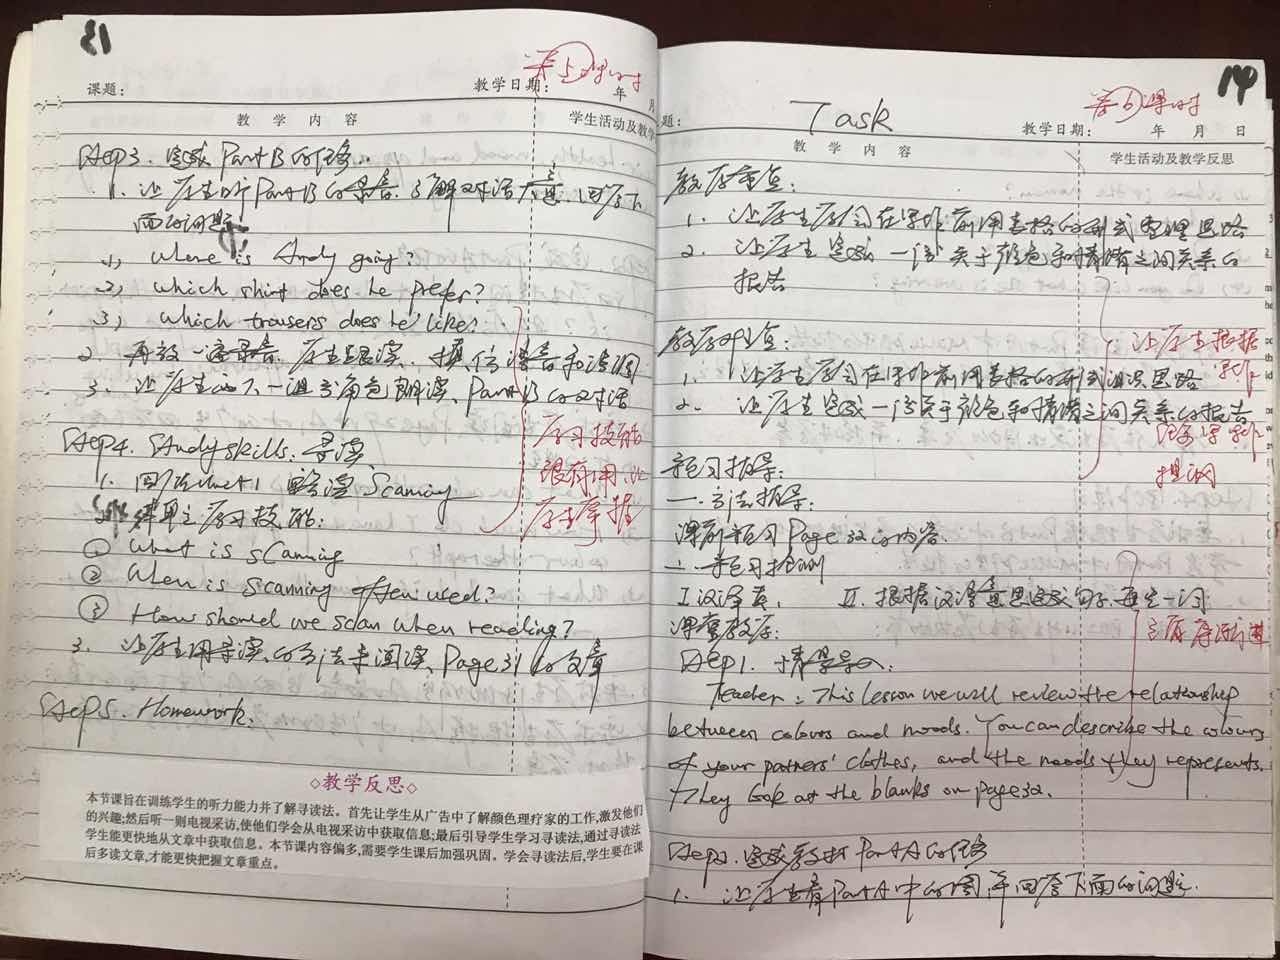 13
第5课时
课题：
教学日期： 年 月
教 学 内 容
学生活动及教学
Step3. 完成 PartB 的任务.
1. 让学生听 PartB 的录音,了解对话大意,回答下
面的问题:
1) Where is Andy going?
2) Which shirt does he prefer?
3) Which trousers does he like?
2. 再放一遍录音,学生跟读,模仿语音和语调
3. 让学生两人一组分角色朗读 PartB 的对话
Step4. Study skills: 寻读
1. 回顾 Unit 1 略读 Scanning
2. 讲单元学习技能:
① What is scanning
② When is scanning often used?
③ How should we scan when reading?
3. 让学生用寻读的方法来阅读 Page 31 的文章
Step5. Homework.
学习技能
很有用,让
学生掌握
◇教学反思◇
本节课旨在训练学生的听力能力并了解寻读法。首先让学生从广告中了解颜色理疗家的工作,激发他们
的兴趣;然后听一则电视采访,使他们学会从电视采访中获取信息;最后引导学生学习寻读法,通过寻读法
学生能更快地从文章中获取信息。本节课内容偏多,需要学生课后加强巩固。学会寻读法后,学生要在课
后多读文章,才能更快把握文章重点。
14
第6课时
题：
Task
教学日期： 年 月 日
教 学 内 容
学生活动及教学反思
教学重点:
1. 让学生学会在写作前用表格的形式整理思路
2. 让学生完成一份关于颜色和情绪之间关系的
报告
教学难点:
1. 让学生学会在写作前用表格的形式组织思路
2. 让学生完成一份关于颜色和情绪之间关系的报告
让学生根据
写作
提纲
预习指导:
一.方法指导:
课前预习 Page 32 的内容.
二.预习检测
I. 汉译英, II. 根据汉语意思完成句子,每空一词
课堂教学:
Step1. 情景导入:
Teacher: This lesson we will review the relationship
between colours and moods. You can describe the colours
of your partners' clothes, and the moods they represents.
They look at the blanks on page 32.
Step2. 完成教材 PartA 的任务
1. 让学生看 PartA 中的图,并回答下面的问题: